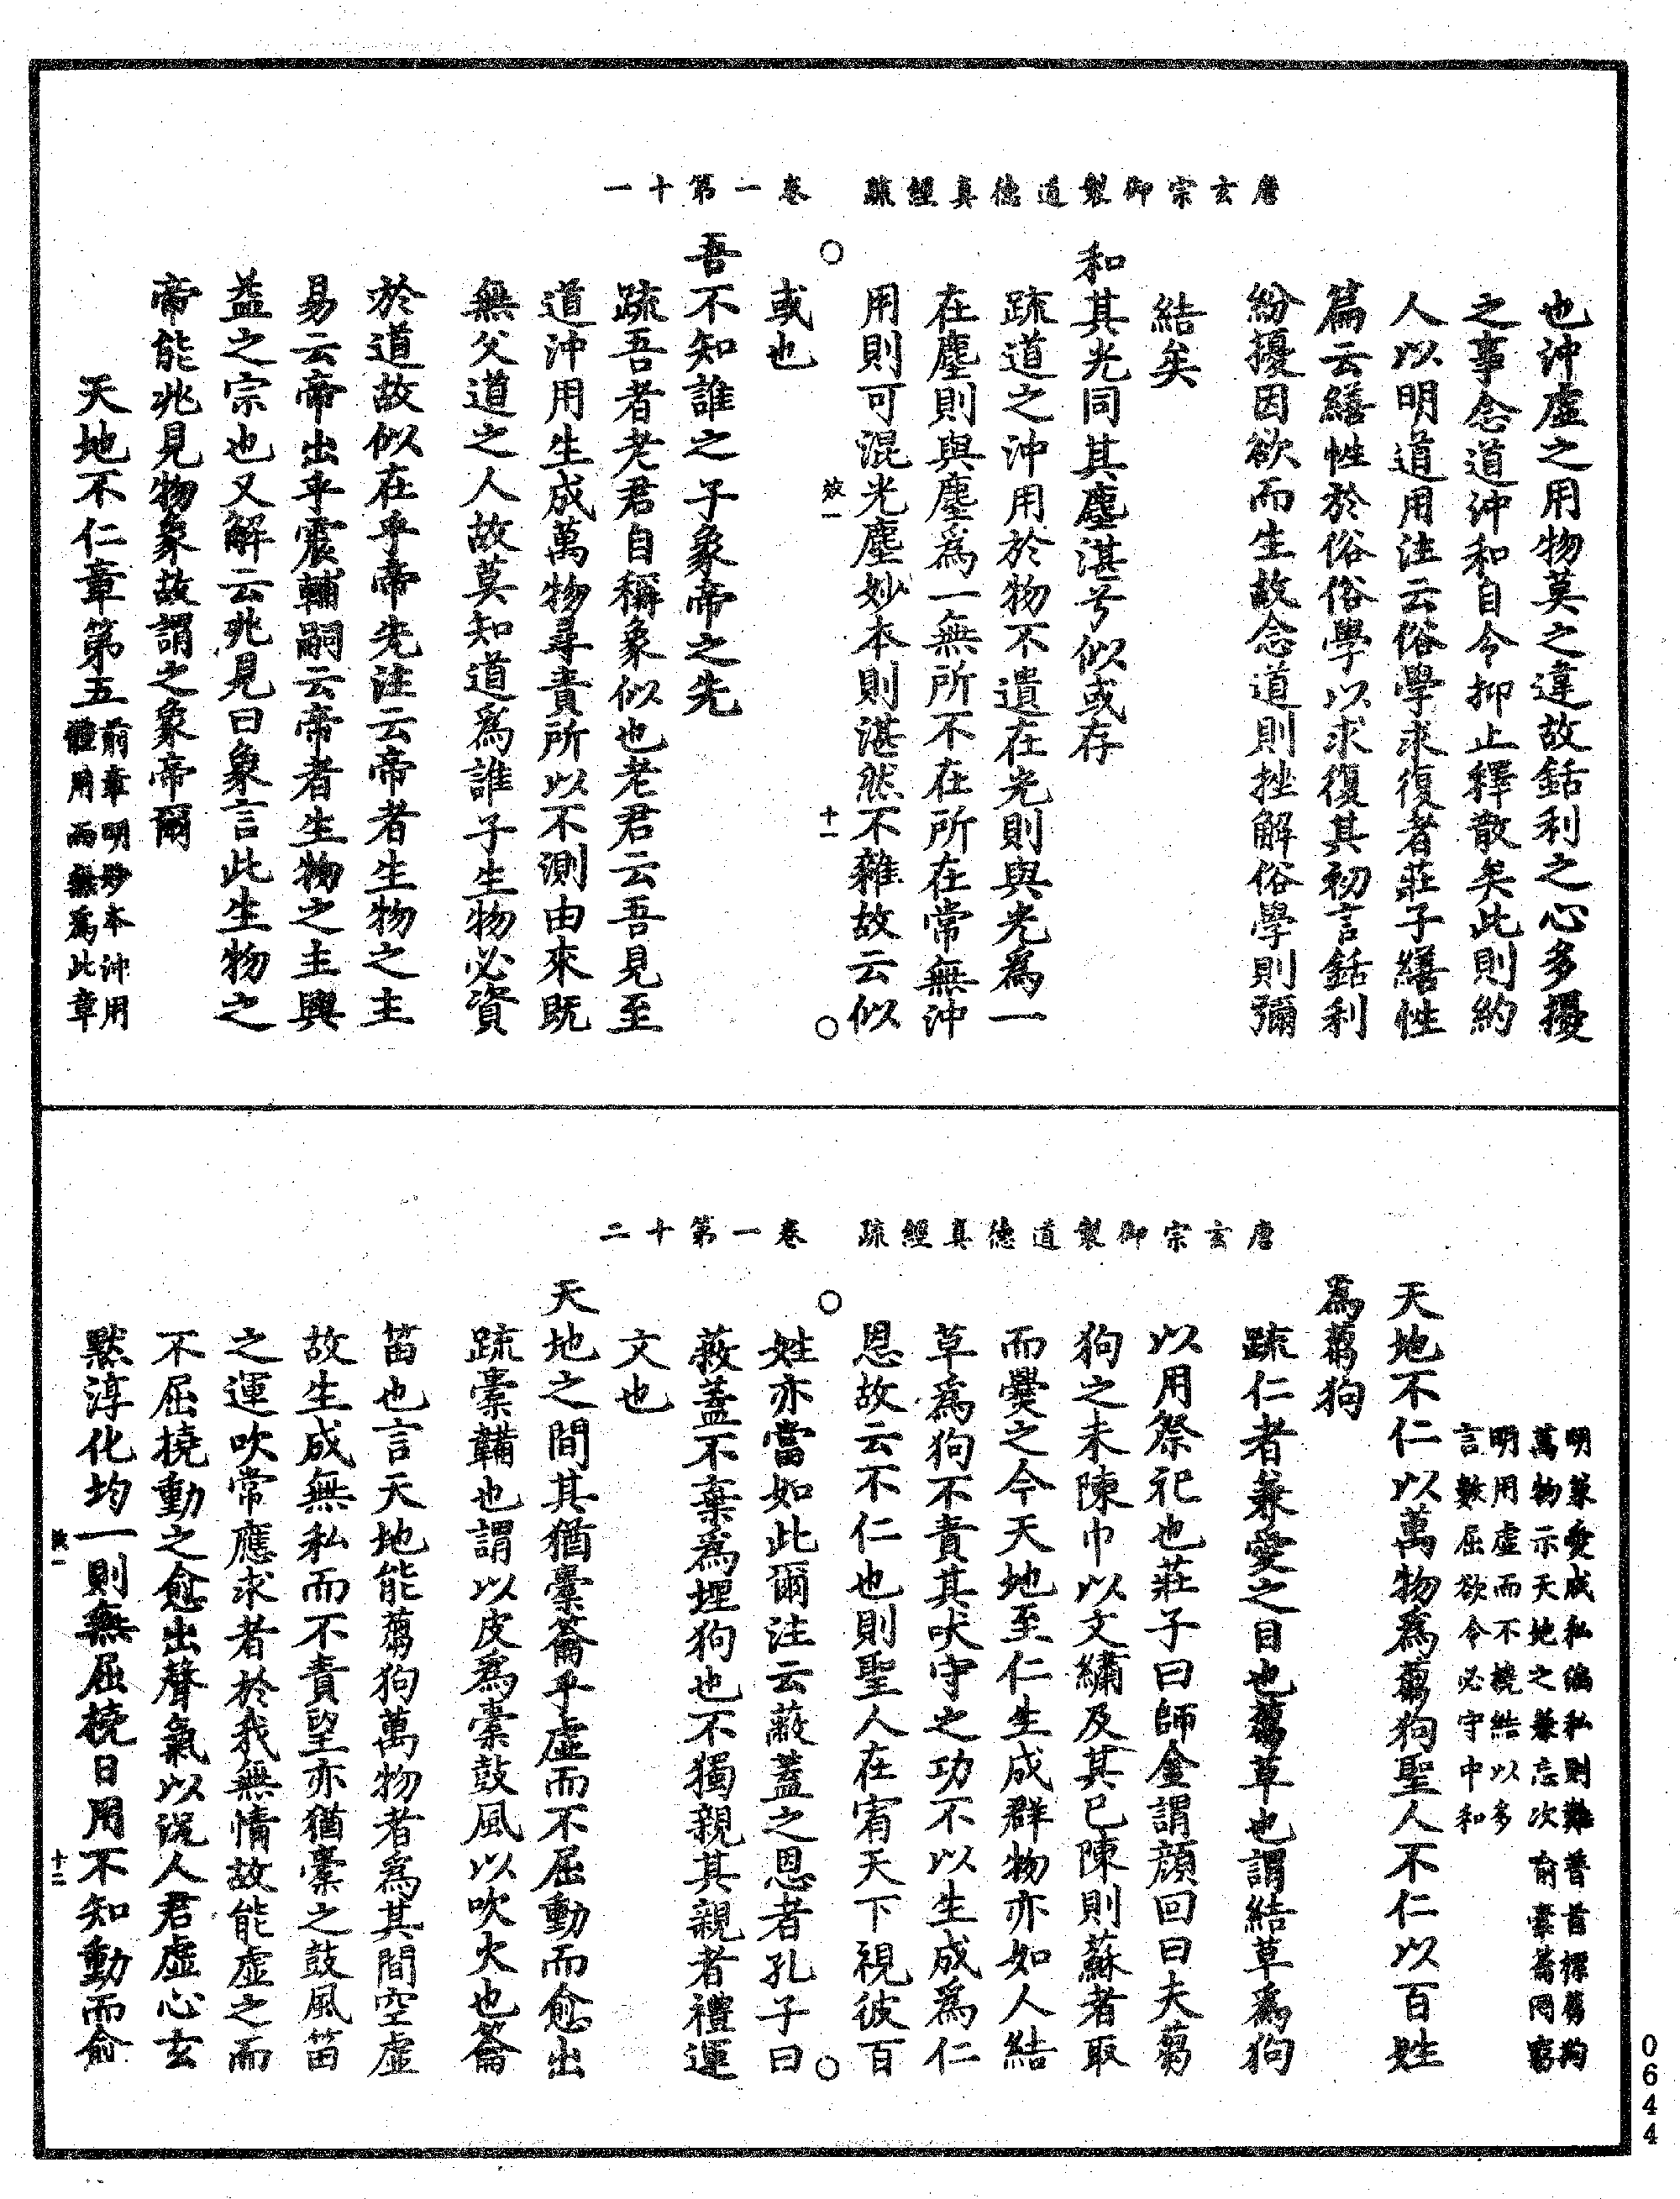 唐玄宗御製道德真經疏　卷一第十一
也沖虛之用物莫之違故銛利之心多擾
之事念道沖和自令抑止釋散矣此則約
人以明道用注云俗學求復者莊子繕性
篇云繕性於俗俗學以求復其初言銛利
紛擾因欲而生故念道則挫解俗學則彌
結矣
和其光同其塵湛兮似或存
疏道之沖用於物不遺在光則與光為一
在塵則與塵為一無所不在所在常無沖
用則可混光塵妙本則湛然不雜故云似
○　效一　十一　○
或也
吾不知誰之子象帝之先
疏吾者老君自稱象似也老君云吾見至
道沖用生成萬物尋責所以不測由來既
無父道之人故莫知道為誰子生物必資
於道故似在乎帝先注云帝者生物之主
易云帝出乎震輔嗣云帝者生物之主興
益之宗也又解云兆見曰象言此生物之
帝能兆見物象故謂之象帝爾
天地不仁章第五前章明妙本沖用
體用而無為此章
唐玄宗御製道德真經疏　卷一第十二
明兼愛成私偏私則難普首標芻狗
萬物示天地之兼忘次俞橐籥罔窮
明用虛而不橈結以多
言數屈欲令必守中和
天地不仁以萬物為芻狗聖人不仁以百姓
為芻狗
疏仁者兼愛之目也芻草也謂結草為狗
以用祭祀也莊子曰師金謂顏回曰夫芻
狗之未陳巾以文繡及其已陳則蘇者取
而爨之今天地至仁生成群物亦如人結
草為狗不責其吠守之功不以生成為仁
恩故云不仁也則聖人在宥天下視彼百
○　○
姓亦當如此爾注云蔽蓋之恩者孔子曰
蔽蓋不棄為埋狗也不獨親其親者禮運
文也
天地之間其猶橐籥乎虛而不屈動而愈出
疏橐韛也謂以皮為橐鼓風以吹火也籥
笛也言天地能芻狗萬物者為其間空虛
故生成無私而不責望亦猶橐之鼓風笛
之運吹常應求者於我無情故能虛之而
不屈橈動之愈出聲氣以況人君虛心玄
默淳化均一則無屈橈日用不知動而愈
效一　十二
0644